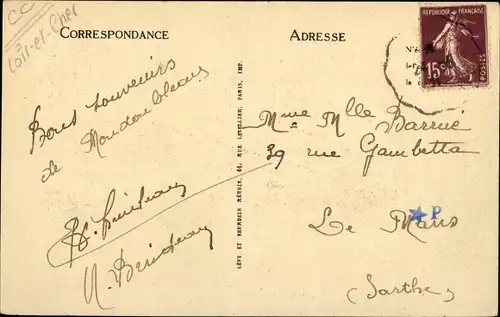 CC
Loir-et-Cher
CORRESPONDANCE
Bons souvenirs
de Mondoubleau
LÉVY ET NEURDEIN RÉUNIS, 44, RUE LETELLIER, PARIS, IMP.
ADRESSE
15c
POSTES
Mme Mlle
39 rue Gambetta
Le Mans
P
(Sarthe)